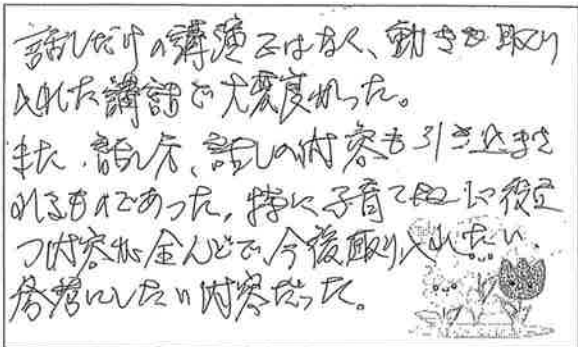 話しだけの講演ではなく、動きを取り
入れた講話で大変良かった。
また、話し方、話しの内容も引き込まさ
れるものであった。特に子育て に役立
つ内容が全んどで、今後取り入れたい、
参考にしたい内容だった。